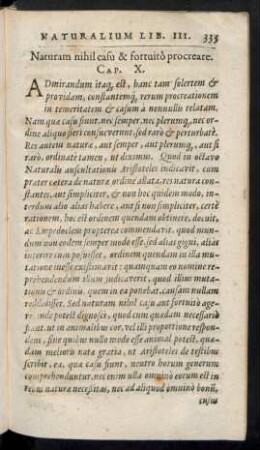 NATURALIUM LIB. III. 335
Naturam nihil casu & fortuitò procreare.
CAP. X.
ADmirandum itaq; est, hanc tam solertem &
providam, constantemq; rerum procreationem
in temeritatem & casum à nonnullis relatam.
Nam quæ casu fiunt, nec semper, nec plerumq; nec or-
dine aliquo fieri consueverunt, sed rarò & perturbatè.
Res autem naturæ, aut semper, aut plerumq; aut si
rarò, ordinatè tamen, ut diximus. Quod in octavo
Naturalis auscultationis Aristoteles indicavit, cum
præter cetera de natura ordine allata, res natura con-
stantes, aut simpliciter, & non hoc quidem modo, in-
terdum alio alias habere, aut si non simpliciter, certè
rationem, hoc est ordinem quendam obtinere, docuit,
ac Empedoclem propterea commendavit, quod mun-
dum non eodem semper modo esse, sed alias gigni, aliàs
interire cum posuisset, ordinem quendam in illa mu-
tatione inesse existimârit: quamquam eo nomine re-
prehendendum illum judicaverit, quod illius muta-
tionis & ordinis, quem in ea ponebat, causam nullam
reddidisset. Sed naturam nihil casu aut fortuitò age-
re, inde potest dignosci, quod cum quædam necessariò
fiant, ut in animalibus cor, vel illi proportione respon-
dens, sine quibus nullo modo esse animal potest, quæ-
dam melioris nota gratia, ut Aristoteles de testibus
scribit, ea, quæ casu fiunt, neutro horum generum
comprehenduntur, nec enim ulla omninò eorum est in
rerum natura necessitas, nec ad aliquod omninò bonũ,